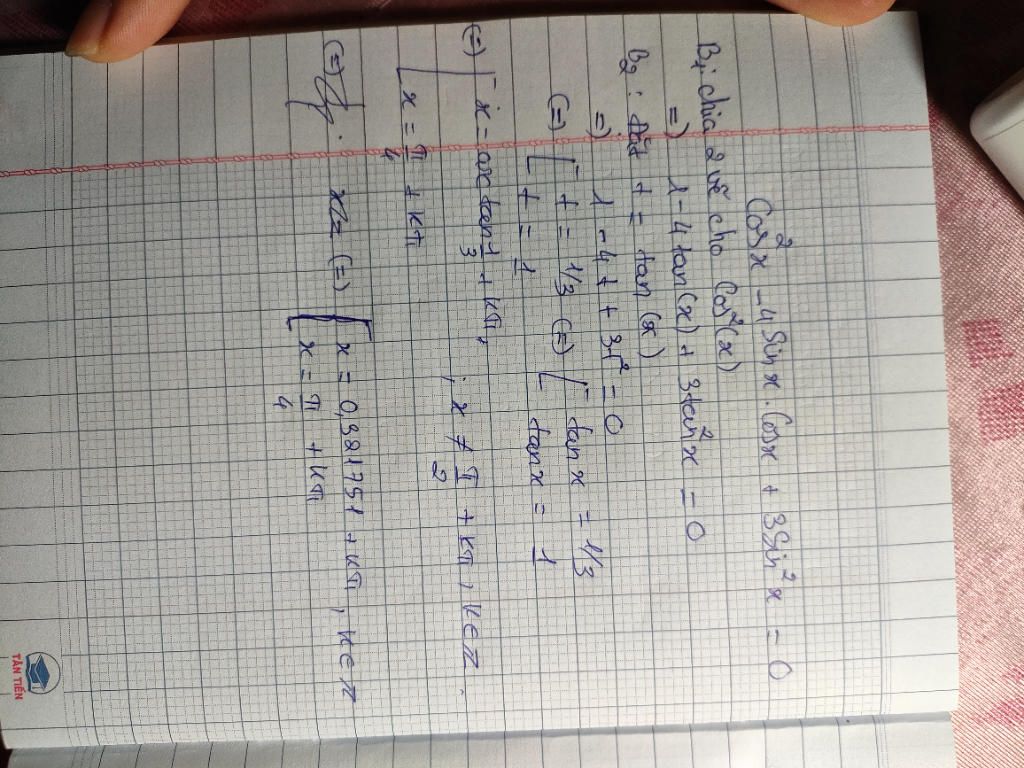 Cos²x - 4Sinx.Cosx + 3Sin²x = 0
B1: chia 2 vế cho Cos²(x)
=) 1 - 4tan(x) + 3tan²x = 0
B2: đặt t = tan(x)
=) 1 - 4t + 3t² = 0
(=) [ t = 1/3 (=) [ tanx = 1/3
t = 1 tanx = 1
(=) [ x = arctan 1/3 + kπ, ; x ≠ π/2 + kπ, k∈Z.
x = π/4 + kπ
(=) (=) [ x = 0,321751 + kπ, k∈Z
x = π/4 + kπ
TÂN TIẾN